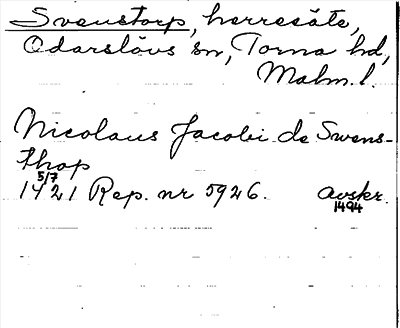 Svenstorp, herresäte,
Odarslövs sn, Torna hd,
Malm. l.
Nicolaus Jacobi de Swens-
thop
5/7
1421 Rep. nr 5926. avskr.
1494